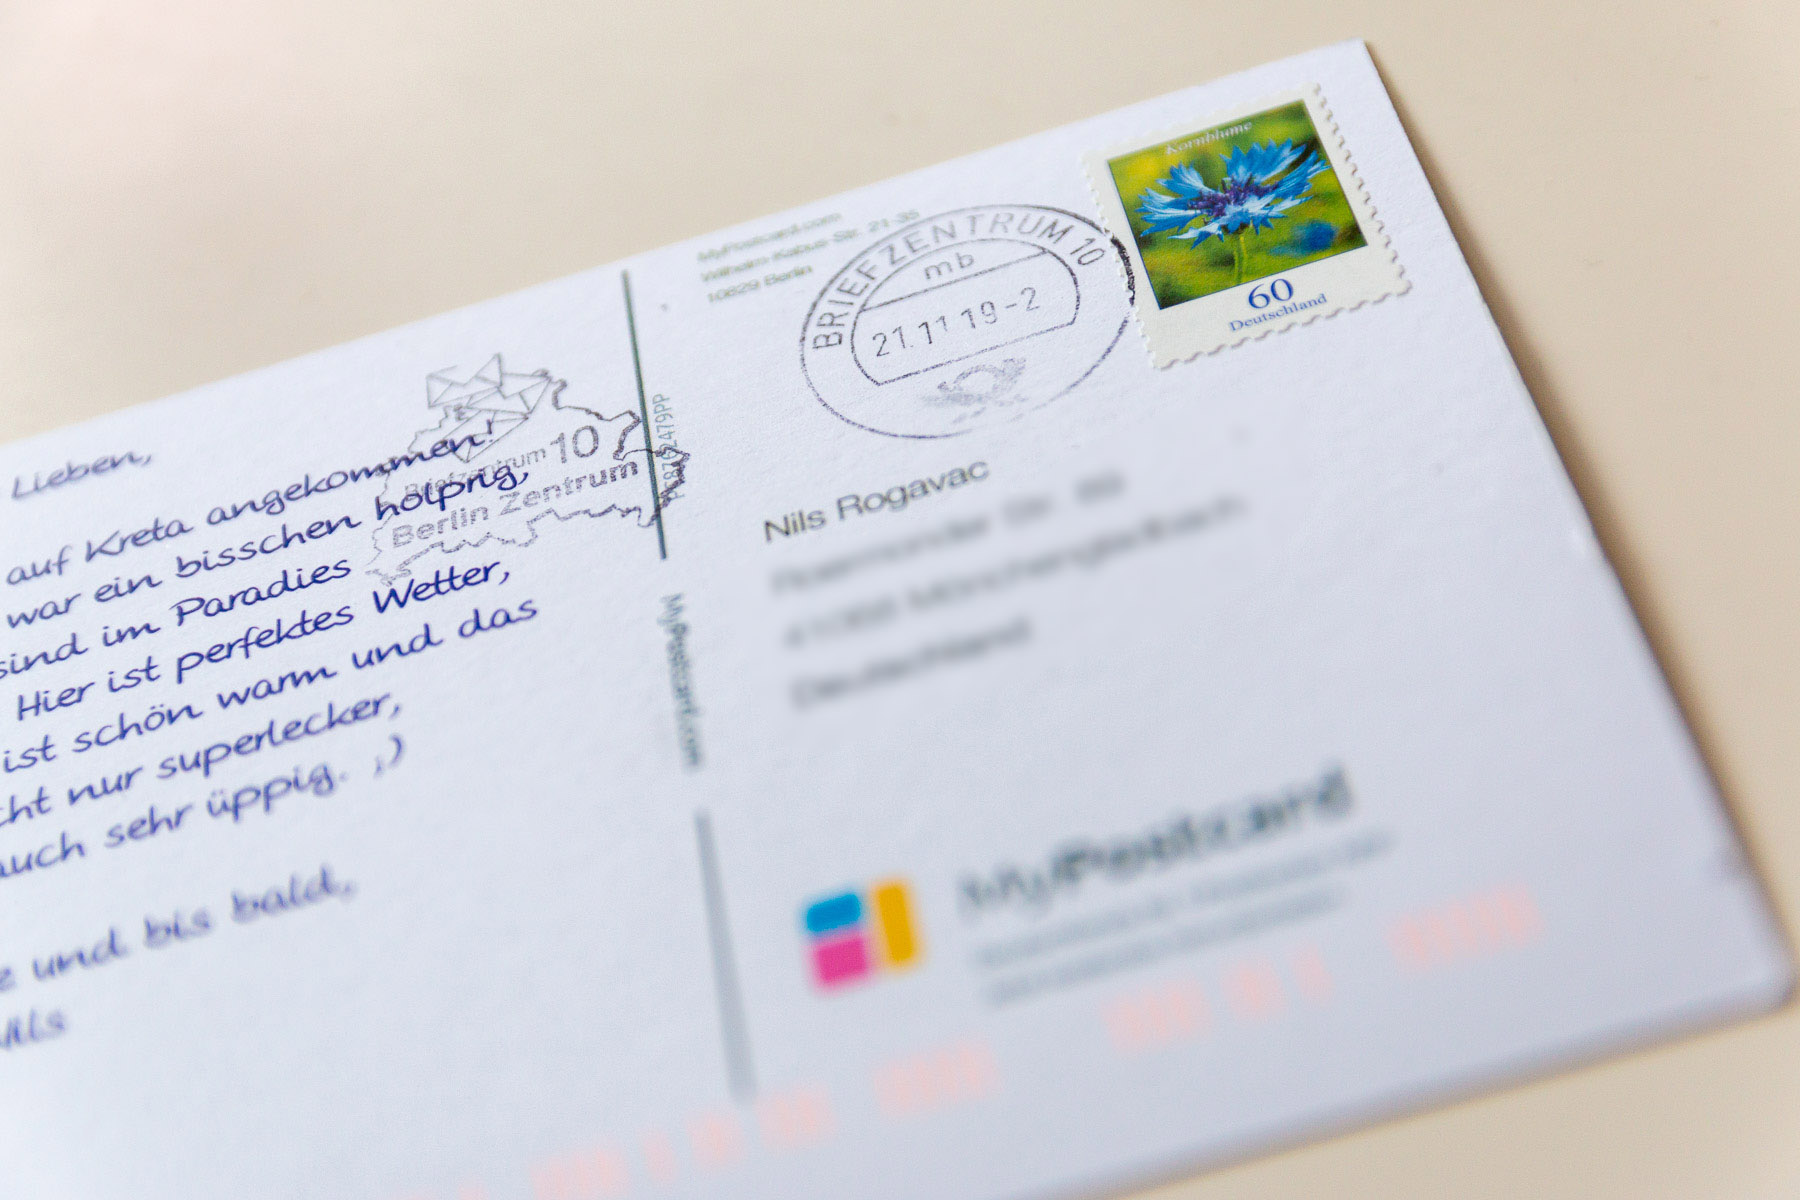 Lieben,
auf Kreta angekommen!
war ein bisschen holprig,
sind im Paradies
Hier ist perfektes Wetter,
ist schön warm und das
cht nur superlecker,
auch sehr üppig. ;)
z und bis bald,
Nils
Briefzentrum 10
Berlin Zentrum
MyPostcard.com
MyPostcard.com
10829 Berlin
BRIEFZENTRUM 10
mb
21.11.19-2
Kornblume
60
Deutschland
Nils Rogavac
Deutschland
MyPostcard